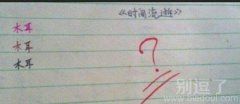 《时间流逝》
木耳
木耳
木耳
?
别逗了
biedoul.com